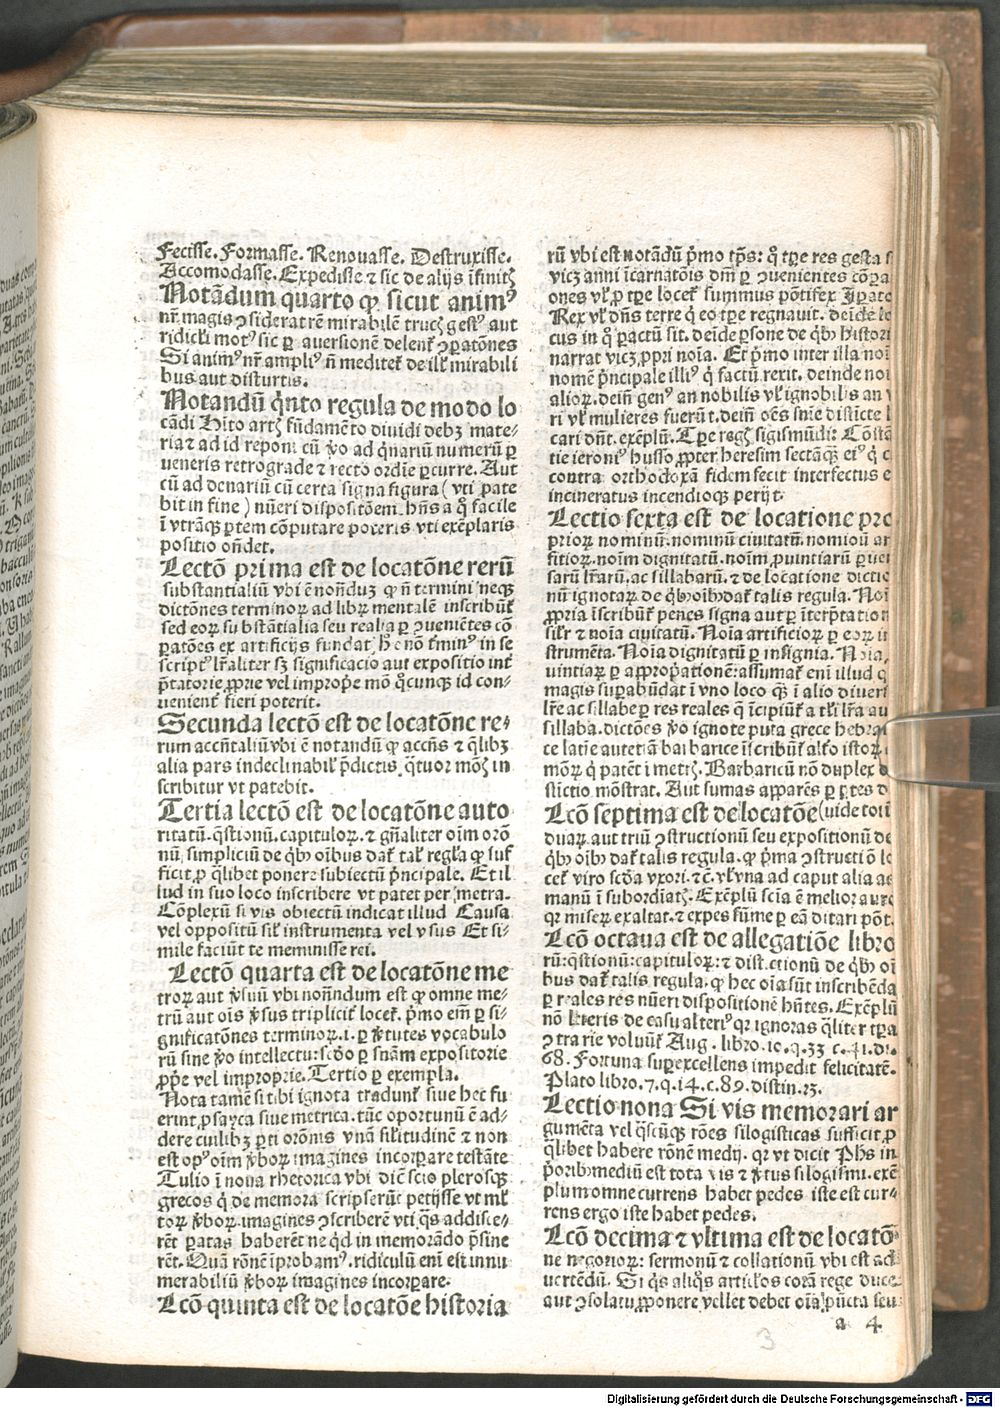 Fecisse. Formasse. Renouasse. Destruxisse.
Accomodasse. Expedisse ⁊ sic de alijs īfinitꝫ
Notādum quarto ꝙ sicut animꝰ
nr̄ magis ꝯsiderat rē mirabilē trucꝫ gestꝰ aut
ridicĺi motꝰ sic ꝑ auersionē delent̉ ꝯꝑatōnes
Si animꝰ nr̄ ampliꝰ ñ meditet̉ de ilł mirabili
bus aut disturtis.
Notandū q̄nto regula de modo lo
cādi Hito artꝫ fūdamēto diuidi debꝫ mate⸗
ria ⁊ ad id reponi cū ꝟo ad q̇nariū numerū ꝑ
veneris retrograde ⁊ recto ordīe ꝑcurre. Aut
cū ad denariū cū certa signa figura (vti pate
bit in fine) nūeri dispositōem. hn̄s a q̊ facile
ī vtrāqꝫ ꝑtem cōputare poteris vti exēplaris
positio on̄det.
Lectō prima est de locatōne rerū
substantialiū vbi ē nonduꝫ ꝙ ñ termini neqꝫ
dictōnes terminoꝝ ad librꝫ mentalē inscribūt̉
sed eoꝝ substantialia seu realia ꝑ ꝯueniētes cō
ꝑatōes ex artificijs fundat̉ in se
script̉ lr̄aliter sꝫ significacio aut expositio int̉
p̄tatorie ꝓprie vel improp̄e mō q̊cunqꝫ id con⸗
uenient̉ fieri poterit.
Secunda lectō est de locatōne re⸗
rum accn̄taliū vbi ē notandū ꝙ accn̄s ⁊ q̄libꝫ
alia pars indeclinabil̉ p̄dictis q̈tuor mōꝫ in
scribitur vt patebit.
Tertia lectō est de locatōne auto
ritatū. q̄stionū. capituloꝝ. ⁊ gn̄aliter oīm orō
nū simpliciū de q̇bꝫ oībus dat̉ tal̉ reg̉la ꝙ suf
ficit ꝓ q̄libet ponere subiectū p̄ncipale. Et il
lud in suo loco inscribere vt patet per metra.
Cōplexū si vis obiectū indicat illud Causa
vel oppositū sil̉ instrumenta vel vsus Et si⸗
mile faciūt te meminisse rei.
Lectō quarta est de locatōne me
troꝝ aut ꝟsuū vbi non̄ndum est ꝙ omne me⸗
trū aut oīs ꝟsus triplicit̉ locet̉. p̄mo em̄ ꝑ si⸗
gnificatōnes terminoꝝ. i. ꝑ ꝟtutes vocabulo
rū sine ꝟo intellectu: scd̄o ꝑ sn̄am expositorie
ꝓp̄e vel improprie. Tertio ꝑ exempla.
Nota tamē si tibi ignota tradunt̉ siue hec fu
erint ꝓsayca siue metrica. tūc oportunū ē ad⸗
dere cuilibꝫ ꝑti orōnis vnā sil̉itudinē ⁊ non
est opꝰ oīm ꝟboꝝ imagines incorꝑare testāte
Tulio ī noua rhetorica vbi diē scio plerosqꝫ
grecos q̇ de memora scripserūt petijsse vt ml̉
toꝝ ꝟboꝝ imagines ꝯscriberē vti q̇s addisce⸗
rēt ꝑatas haberēt ne q̇d in memorādo p̄sine
rēt. Quā rōnē īprobamꝰ. ridiculū enī est innu
merabiliū ꝟboꝝ imagines incorꝑare.
Lcō quinta est de locatōe historia
rū vbi est notādū p̄mo tp̄s: q̊ tꝑe res gesta s
vicꝫ anni īcarnatōis dn̄i ꝑ ꝯuenientes cōꝑa
ones vl̉ ꝓ tꝑe locet̉ summus pōtifex Īpato
Rex vl̉ dn̄s terre q̇ eo tꝑe regnauit. deīde lo
cus in q̊ ꝑactū sit. deīde ꝑsone de q̇bꝫ histori
narrat vicꝫ ꝓpri noīa. Et p̄mo inter illa noī
nomē p̄ncipale illiꝰ q̇ factū rexit. deinde noī
alioꝝ. dein̄ genꝰ an nobilis vl̉ ignobilis an v
ri vl̉ mulieres fuerūt. dein̄ oēs sn̄ie distīcte l
cari dn̄t. exēplū. Tꝑe regꝫ sigismūdi: Cōstā
tie ieroniꝰ husso ꝓpter heresim sectāqꝫ eiꝰ q̇ c
contra orthodoxā fidem fecit interfectus e
incineratus incendioqꝫ perijt.
Lectio sexta est de locatione pro
prioꝝ nominū. nominū ciuitatū. nomiōu ar
fitioꝝ. noīm dignitatū. noīm ꝓuintiarū ꝑuer
sarū lr̄arū. ac sillabarū. ⁊ de locatione dictio
nū ignotaꝝ de q̇bꝫ oībꝫ dat̉ talis regula. Noī
ꝓpria īscribūt̉ penes signa aut ꝑ īterp̄tation
sil̉r ⁊ noīa ciuitatū. Noīa artificioꝝ ꝑ eoꝝ i
strumēta. Noīa dignitatū ꝑ insignia. Noīa
uintiaꝝ ꝑ appropatiōnē: assumat̉ enī illud q
magis suꝑabūdat ī vno loco qꝫ ī alio diuersi
lr̄e ac sillabe ꝑ res reales q̄ īcipiūt̉ a tl̉i lr̄a au
sillaba. dictōes ꝟo ignote puta grece hebrai
ce latīe autetiā barbarice īscribūt̉ al̉ꝯ istoꝝ
mōꝝ q̇ patēt ī metrꝫ. Barbaricū nō duplex
stictio mōstrat. Aut sumas apparēs ꝑ ꝑtes d
Lcō septima est de locatōe (vide totū
duaꝝ aut triū ꝯstructionū seu expositionū de
q̇bꝫ oībꝫ dat̉ talis regula. ꝙ p̄ma ꝯstructiō lo
cet̉ viro scd̄a vxori. ⁊c̄. vl̉ vna ad caput alia ad
manū ī subordīatꝫ. Exēplū scīa ē melior auro
qꝛ miseꝝ exaltat. ⁊ expes fūme ꝑ eā ditari pōt.
Lcō octaua est de allegatiōe libro
rū: q̄stionū: capituloꝝ: ⁊ distictionū de q̇bꝫ oī
bus dat̉ talis regula. ꝙ hec oīa sūt inscribēda
ꝑ reales res nūeri dispositionē hn̄tes. Exēplū
nō lr̄eris de casu alteriꝰ qꝛ ignoras q̄liter tꝑa
ꝯtrarie voluūt̉ Aug. libro. 10. q. 33 c. 41. di.
68. Fortuna suꝑexcellens impedit felicitatē.
Plato libro. 7. q. 14. c. 89. distin. 23.
Lectio nona Si vis memorari ar
gumēta vel q̇scūqꝫ rōes silogisticas sufficit ꝓ
q̄libet habere rōnē medij. qꝛ vt dicit Phs in
p̄oribꝫ mediū est tota vis ⁊ ꝟtus silogismi. exē
plum omne currens habet pedes iste est cur⸗
rens ergo iste habet pedes.
Lcō decima ⁊ vltima est de locatō
ne negotioꝝ: sermonū ⁊ collationū vbi est ad
uertēdū. Si q̇s aliq̇s articl̉os corā rege duce
aut ꝯsolatu ꝓponere vellet debet oīa pūcta seu
a 4
3
Digitalisierung gefördert durch die Deutsche Forschungsgemeinschaft - DFG